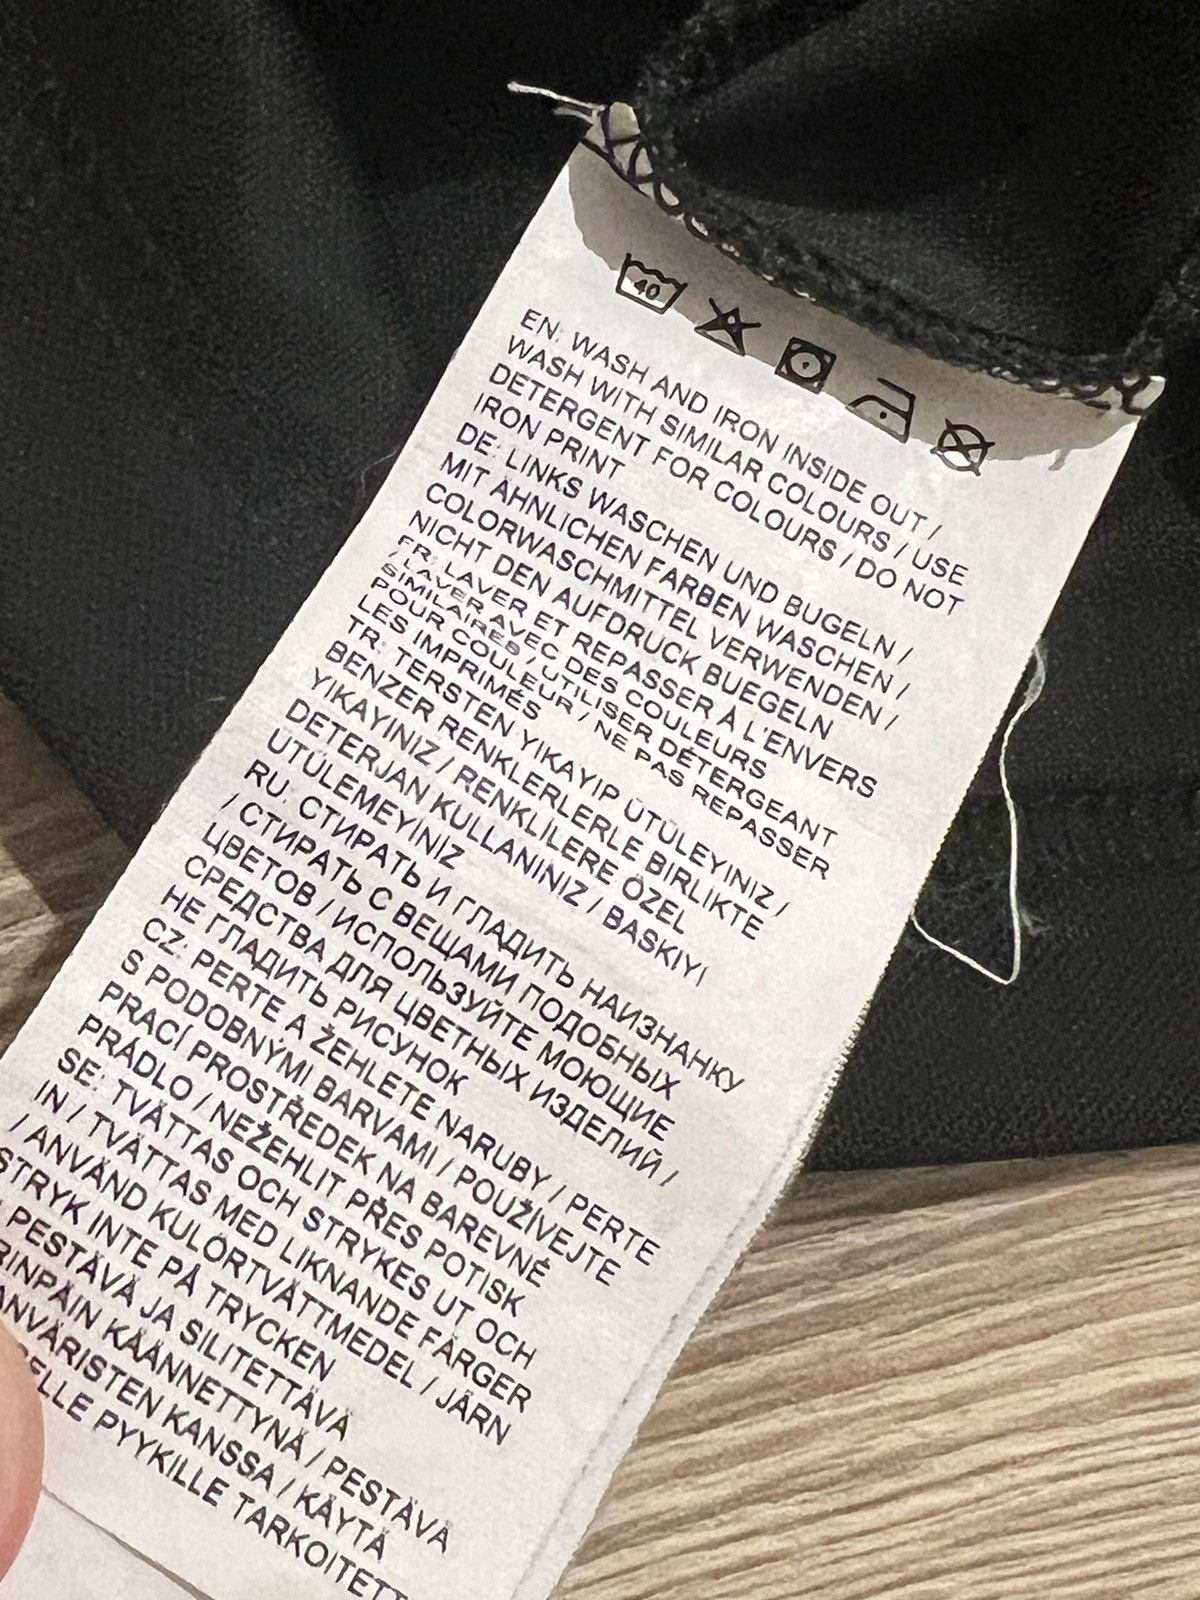 40
EN: WASH AND IRON INSIDE OUT /
WASH WITH SIMILAR COLOURS / USE
DETERGENT FOR COLOURS / DO NOT
IRON PRINT
DE: LINKS WASCHEN UND BUGELN /
MIT ÄHNLICHEN FARBEN WASCHEN /
COLORWASCHMITTEL VERWENDEN /
NICHT DEN AUFDRUCK BUEGELN
FR: LAVER ET REPASSER À L'ENVERS
/ LAVER AVEC DES COULEURS
SIMILAIRES / UTILISER DÉTERGEANT
POUR COULEUR / NE PAS REPASSER
LES IMPRIMÉS
TR: TERSTEN YIKAYIP ÜTÜLEYINIZ /
BENZER RENKLERLERLE BIRLIKTE
YIKAYINIZ / RENKLİLERE ÖZEL
DETERJAN KULLANINIZ / BASKIYI
ÜTÜLEMEYINIZ
RU: СТИРАТЬ И ГЛАДИТЬ НАИЗНАНКУ
/ СТИРАТЬ С ВЕЩАМИ ПОДОБНЫХ
ЦВЕТОВ / ИСПОЛЬЗУЙТЕ МОЮЩИЕ
СРЕДСТВА ДЛЯ ЦВЕТНЫХ ИЗДЕЛИЙ /
НЕ ГЛАДИТЬ РИСУНОК
CZ: PERTE A ŽEHLETE NARUBY / PERTE
S PODOBNÝMI BARVAMI / POUŽÍVEJTE
PRACÍ PROSTŘEDEK NA BAREVNÉ
PRÁDLO / NEŽEHLIT PŘES POTISK
SE: TVÄTTAS OCH STRYKES UT OCH
IN / TVÄTTAS MED LIKNANDE FÄRGER
/ ANVÄND KULÖRTVÄTTMEDEL / JÄRN
STRYK INTE PÅ TRYCKEN
PESTÄVÄ JA SILITETTÄVÄ
KÄÄNNETTYNÄ / PESTÄVÄ
KANSSA / KÄYTÄ
PYYKILLE